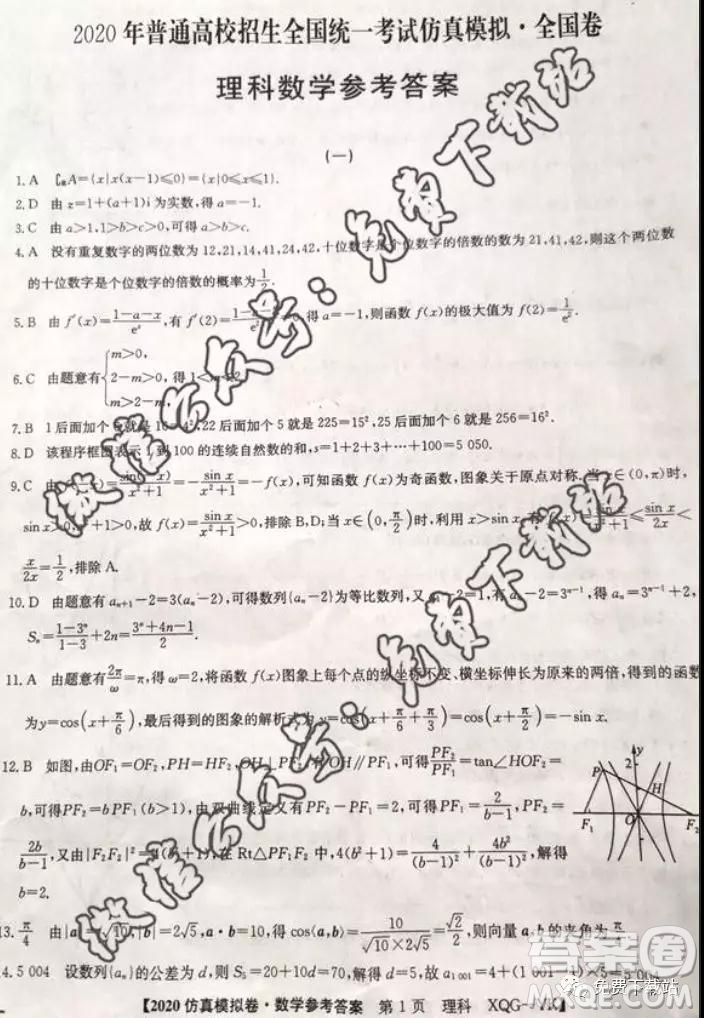 2020 年普通高校招生全国统一考试仿真模拟·全国卷
理科数学参考答案
(一)
1. A ∁ᵣA={x|x(x-1)≤0}={x|0≤x≤1}.
2. D 由 z=1+(a+1)i 为实数,得 a=-1.
3. C 由 a>1,1>b>c>0,可得 a>b>c.
4. A 没有重复数字的两位数为 12,21,14,41,24,42,十位数字是个位数字的倍数的数为 21,41,42,则这个两位数
的十位数字是个位数字的倍数的概率为 1/2.
5. B 由 f′(x)=(1-a-x)/eˣ,有 f′(2)= =0,得 a=-1,则函数 f(x)的极大值为 f(2)=1/e².
6. C 由题意有{m>0, 2-m>0, m>2-m, 得 1<m<2.
7. B 1 后面加个 6 就是 16=4²,22 后面加个 5 就是 225=15²,25 后面加个 6 就是 256=16².
8. D 该程序框图表示 1 到 100 的连续自然数的和,s=1+2+3+…+100=5 050.
9. C 由 f(-x)=sin(-x)/(x²+1)=-sin x/(x²+1)=-f(x),可知函数 f(x)为奇函数,图象关于原点对称.当 x∈(0,π)时,
sin x>0, +1>0,故 f(x)=sin x/(x²+1)>0,排除 B,D;当 x∈(0,π/2)时,利用 x>sin x, /(x²+1)≤sin x/2x<
x/2x=1/2,排除 A.
10. D 由题意有 aₙ₊₁-2=3(aₙ-2),可得数列{aₙ-2}为等比数列,又 a₁-2=1,有 aₙ-2=3ⁿ⁻¹,得 aₙ=3ⁿ⁻¹+2,
Sₙ=(1-3ⁿ)/(1-3)+2n=(3ⁿ+4n-1)/2.
11. A 由题意有 2π/ω=π,得 ω=2,将函数 f(x)图象上每个点的纵坐标不变、横坐标伸长为原来的两倍,得到的函数
为 y=cos(x+π/6),最后得到的图象的解析式为 y=cos(x+π/6+π/3)=cos(x+π/2)=-sin x.
12. B 如图,由 OF₁=OF₂,PH=HF₂,OH⊥PF₂,OH∥PF₁,可得 PF₂/PF₁=tan∠HOF₂=
b,可得 PF₂=bPF₁(b>1),由双曲线定义有 PF₂-PF₁=2,可得 PF₁=2/(b-1),PF₂=
2b/(b-1),又由|F₁F₂|²=4(b²+1),在 Rt△PF₁F₂ 中,4(b²+1)=4/(b-1)²+4b²/(b-1)²,解得
b=2.
y
2
P
H
F₁
O
F₂
x
13. π/4 由|a|=√10,|b|=2√5,a·b=10,得 cos⟨a,b⟩=10/(√10×2√5)=√2/2,则向量 a,b 的夹角为 π/4.
14. 5 004 设数列{aₙ}的公差为 d,则 S₅=20+10d=70,解得 d=5,故 a₁₀₀₁=4+(1 001-1)×5=5 004.
【2020 仿真模拟卷·数学参考答案 第 1 页 理科 XQG—
微信公众号:免费下载站
微信公众号:免费下载站
答案圈
免费下载站